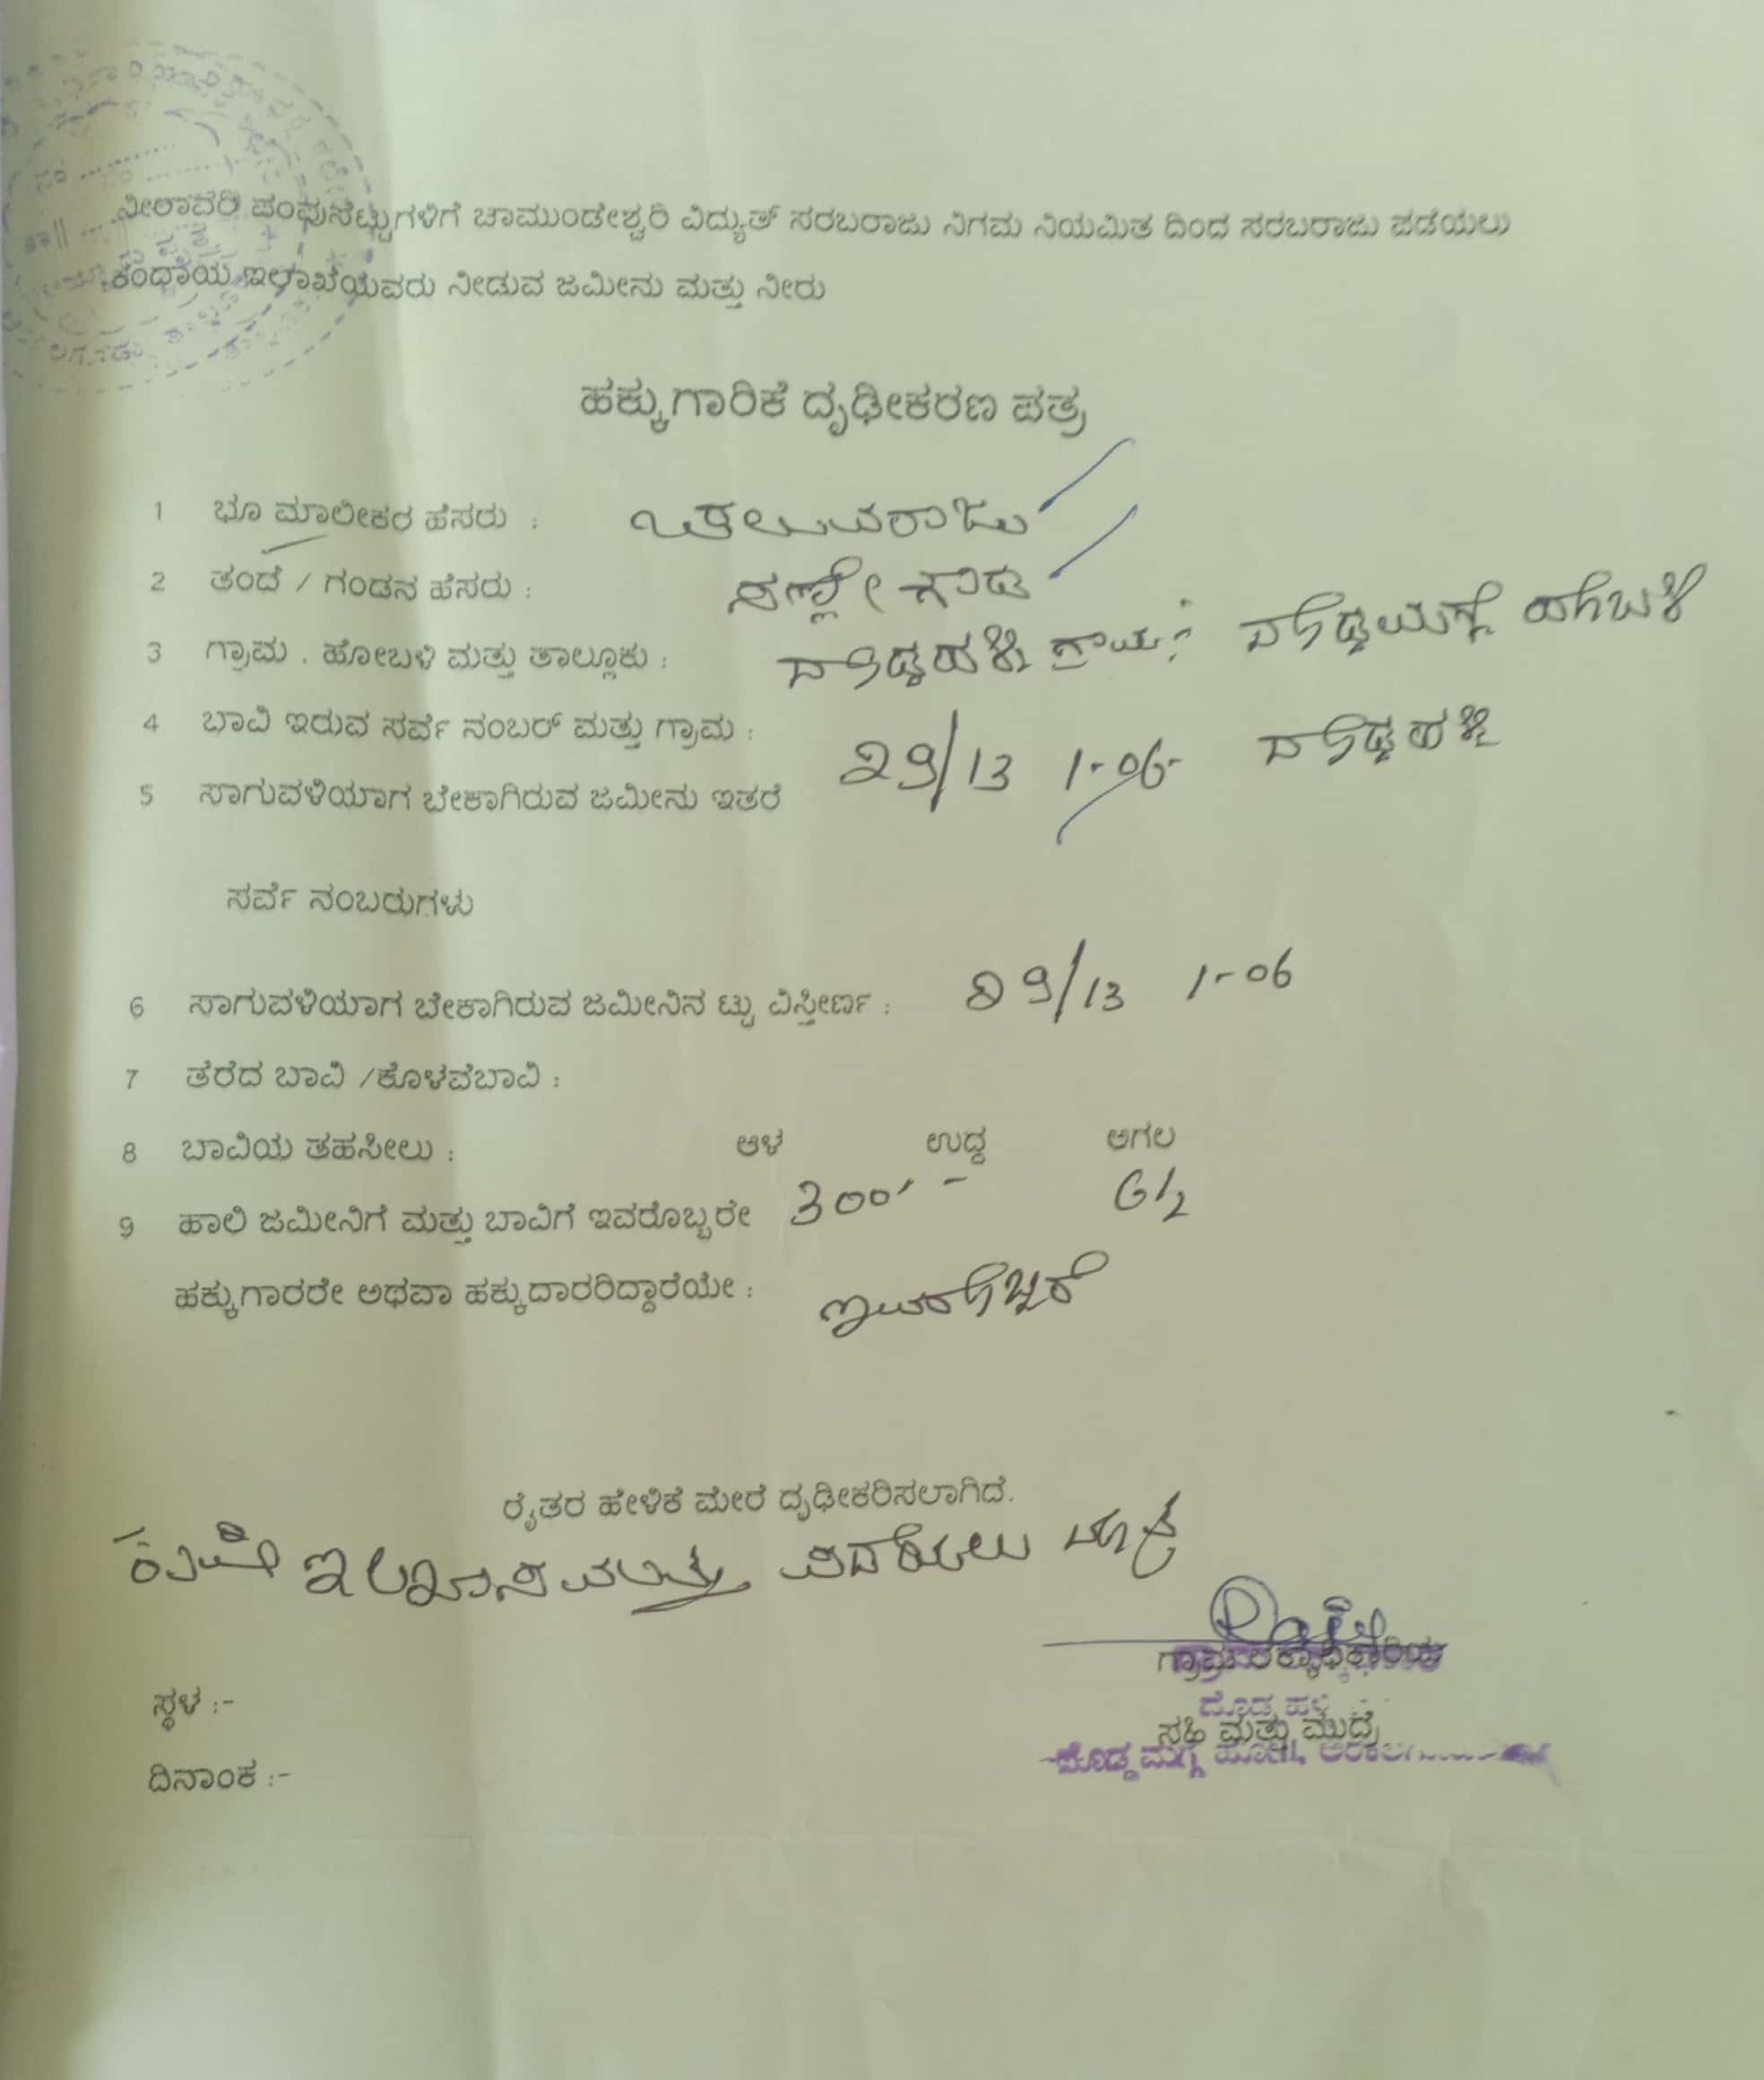 ನೀರಾವರಿ ಪಂಪುಸೆಟ್ಟುಗಳಿಗೆ ಚಾಮುಂಡೇಶ್ವರಿ ವಿದ್ಯುತ್ ಸರಬರಾಜು ನಿಗಮ ನಿಯಮಿತ ದಿಂದ ಸರಬರಾಜು ಪಡೆಯಲು
ಕಂದಾಯ ಇಲಾಖೆಯವರು ನೀಡುವ ಜಮೀನು ಮತ್ತು ನೀರು
ಹಕ್ಕುಗಾರಿಕೆ ದೃಢೀಕರಣ ಪತ್ರ
1 ಭೂ ಮಾಲೀಕರ ಹೆಸರು : ಚಲುವರಾಜು
2 ತಂದೆ / ಗಂಡನ ಹೆಸರು : ಸಣ್ಣೇಗೌಡ
3 ಗ್ರಾಮ . ಹೋಬಳಿ ಮತ್ತು ತಾಲ್ಲೂಕು : ದೊಡ್ಡಹಳ್ಳಿ ಗ್ರಾಮ ದೊಡ್ಡಮಗ್ಗೆ ಹೋಬಳಿ
4 ಬಾವಿ ಇರುವ ಸರ್ವೆ ನಂಬರ್ ಮತ್ತು ಗ್ರಾಮ : 29/13 1-06 ದೊಡ್ಡಹಳ್ಳಿ
5 ಸಾಗುವಳಿಯಾಗ ಬೇಕಾಗಿರುವ ಜಮೀನು ಇತರೆ
ಸರ್ವೆ ನಂಬರುಗಳು
6 ಸಾಗುವಳಿಯಾಗ ಬೇಕಾಗಿರುವ ಜಮೀನಿನ ಟ್ಟು ವಿಸ್ತೀರ್ಣ : 29/13 1-06
7 ತೆರೆದ ಬಾವಿ /ಕೊಳವೆಬಾವಿ :
8 ಬಾವಿಯ ತಹಸೀಲು : ಆಳ ಉದ್ದ ಅಗಲ
300' - 6½
9 ಹಾಲಿ ಜಮೀನಿಗೆ ಮತ್ತು ಬಾವಿಗೆ ಇವರೊಬ್ಬರೇ
ಹಕ್ಕುಗಾರರೇ ಅಥವಾ ಹಕ್ಕುದಾರರಿದ್ದಾರೆಯೇ : ಇವರೊಬ್ಬರೆ
ರೈತರ ಹೇಳಿಕೆ ಮೇರೆ ದೃಢೀಕರಿಸಲಾಗಿದೆ.
ಮಾತ್ರ
ಗ್ರಾಮ ಲೆಕ್ಕಾಧಿಕಾರಿಯ
ದೊಡ್ಡ ಹಳ್ಳಿ
ಸ್ಥಳ :-
ಸಹಿ ಮತ್ತು ಮುದ್ರೆ
ದೊಡ್ಡಮಗ್ಗೆ
ದಿನಾಂಕ :-